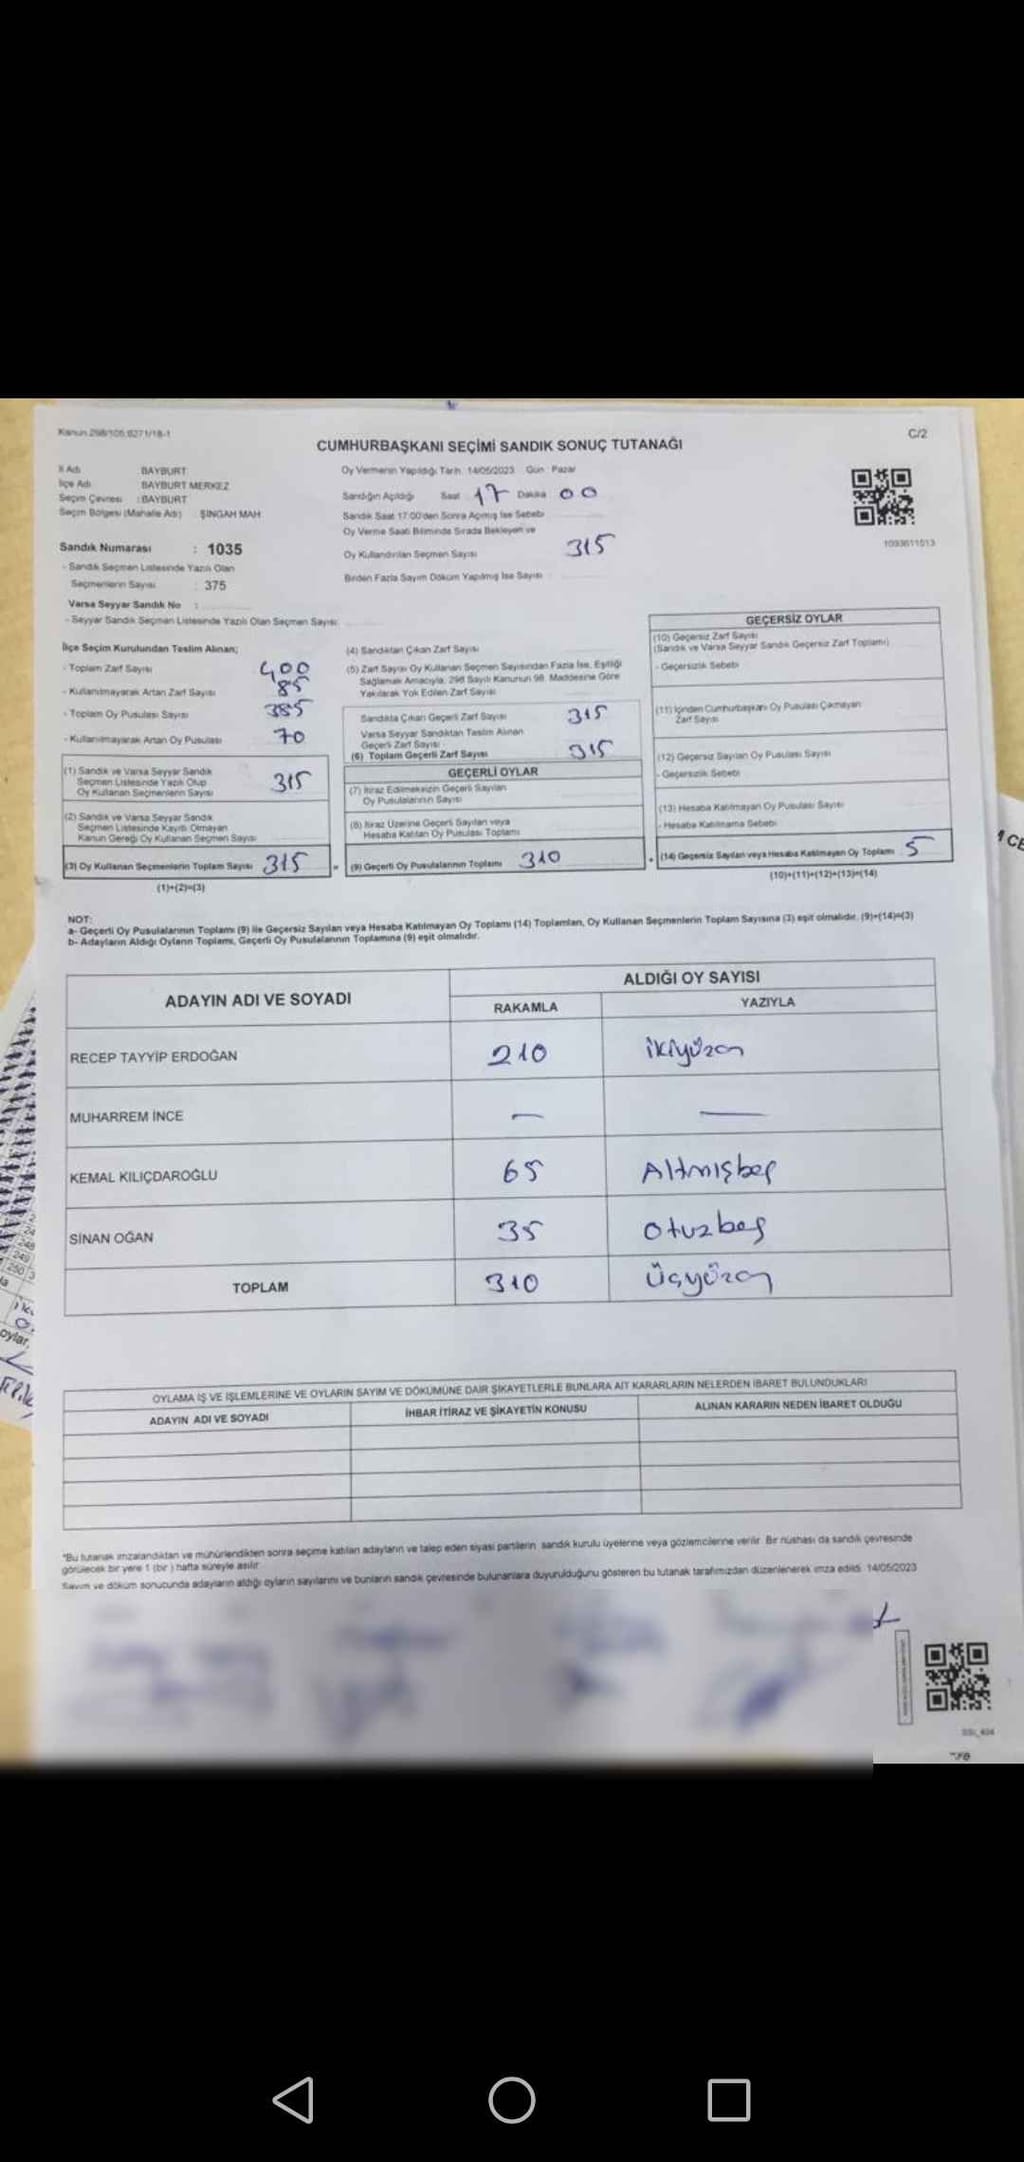 Kanun 298/105;6271/18-1
C/2
CUMHURBAŞKANI SEÇİMİ SANDIK SONUÇ TUTANAĞI
İl Adı BAYBURT
İlçe Adı BAYBURT MERKEZ
Seçim Çevresi : BAYBURT
Seçim Bölgesi (Mahalle Adı) : ŞİNGAH MAH
Sandık Numarası : 1035
- Sandık Seçmen Listesinde Yazılı Olan
Seçmenlerin Sayısı : 375
Varsa Seyyar Sandık No :
- Seyyar Sandık Seçmen Listesinde Yazılı Olan Seçmen Sayısı:
Oy Vermenin Yapıldığı Tarih: 14/05/2023 Gün : Pazar
Sandığın Açıldığı Saat 17 Dakika 00
Sandık Saat 17:00'den Sonra Açılmış İse Sebebi
Oy Verme Saati Bitiminde Sırada Bekleyen ve
Oy Kullandırılan Seçmen Sayısı 315
Birden Fazla Sayım Döküm Yapılmış İse Sayısı
1093611013
İlçe Seçim Kurulundan Teslim Alınan;
- Toplam Zarf Sayısı 400
- Kullanılmayarak Artan Zarf Sayısı 85
- Toplam Oy Pusulası Sayısı 385
- Kullanılmayarak Artan Oy Pusulası 70
(1) Sandık ve Varsa Seyyar Sandık
Seçmen Listesinde Yazılı Olup
Oy Kullanan Seçmenlerin Sayısı 315
(2) Sandık ve Varsa Seyyar Sandık
Seçmen Listesinde Kayıtlı Olmayan
Kanun Gereği Oy Kullanan Seçmen Sayısı
(3) Oy Kullanan Seçmenlerin Toplam Sayısı 315
(1)+(2)=(3)
(4) Sandıktan Çıkan Zarf Sayısı
(5) Zarf Sayısı Oy Kullanan Seçmen Sayısından Fazla İse, Eşitliği
Sağlamak Amacıyla, 298 Sayılı Kanunun 98. Maddesine Göre
Yakılarak Yok Edilen Zarf Sayısı
Sandıkta Çıkan Geçerli Zarf Sayısı 315
Varsa Seyyar Sandıktan Teslim Alınan
Geçerli Zarf Sayısı
(6) Toplam Geçerli Zarf Sayısı 315
GEÇERLİ OYLAR
(7) İtiraz Edilmeksizin Geçerli Sayılan
Oy Pusulalarının Sayısı
(8) İtiraz Üzerine Geçerli Sayılan veya
Hesaba Katılan Oy Pusulası Toplamı
= (9) Geçerli Oy Pusulalarının Toplamı 310
GEÇERSİZ OYLAR
(10) Geçersiz Zarf Sayısı
(Sandık ve Varsa Seyyar Sandık Geçersiz Zarf Toplamı)
- Geçersizlik Sebebi
(11) İçinden Cumhurbaşkanı Oy Pusulası Çıkmayan
Zarf Sayısı
(12) Geçersiz Sayılan Oy Pusulası Sayısı
- Geçersizlik Sebebi
(13) Hesaba Katılmayan Oy Pusulası Sayısı
- Hesaba Katılmama Sebebi
+ (14) Geçersiz Sayılan veya Hesaba Katılmayan Oy Toplamı 5
(10)+(11)+(12)+(13)=(14)
NOT:
a- Geçerli Oy Pusulalarının Toplamı (9) ile Geçersiz Sayılan veya Hesaba Katılmayan Oy Toplamı (14) Toplamları, Oy Kullanan Seçmenlerin Toplam Sayısına (3) eşit olmalıdır. (9)+(14)=(3)
b- Adayların Aldığı Oyların Toplamı, Geçerli Oy Pusulalarının Toplamına (9) eşit olmalıdır.
ADAYIN ADI VE SOYADI
ALDIĞI OY SAYISI
RAKAMLA YAZIYLA
RECEP TAYYİP ERDOĞAN 210 ikiyüzon
MUHARREM İNCE — —
KEMAL KILIÇDAROĞLU 65 Altmışbeş
SİNAN OĞAN 35 otuzbeş
TOPLAM 310 Üçyüzon
OYLAMA İŞ VE İŞLEMLERİNE VE OYLARIN SAYIM VE DÖKÜMÜNE DAİR ŞİKAYETLERLE BUNLARA AİT KARARLARIN NELERDEN İBARET BULUNDUKLARI
ADAYIN ADI VE SOYADI İHBAR İTİRAZ VE ŞİKAYETİN KONUSU ALINAN KARARIN NEDEN İBARET OLDUĞU
*Bu tutanak imzalandıktan ve mühürlendikten sonra seçime katılan adayların ve talep eden siyasi partilerin sandık kurulu üyelerine veya gözlemcilerine verilir. Bir nüshası da sandık çevresinde
görülecek bir yere 1 (bir ) hafta süreyle asılır.
Sayım ve döküm sonucunda adayların aldığı oyların sayılarını ve bunların sandık çevresinde bulunanlara duyurulduğunu gösteren bu tutanak tarafımızdan düzenlenerek imza edildi. 14/05/2023